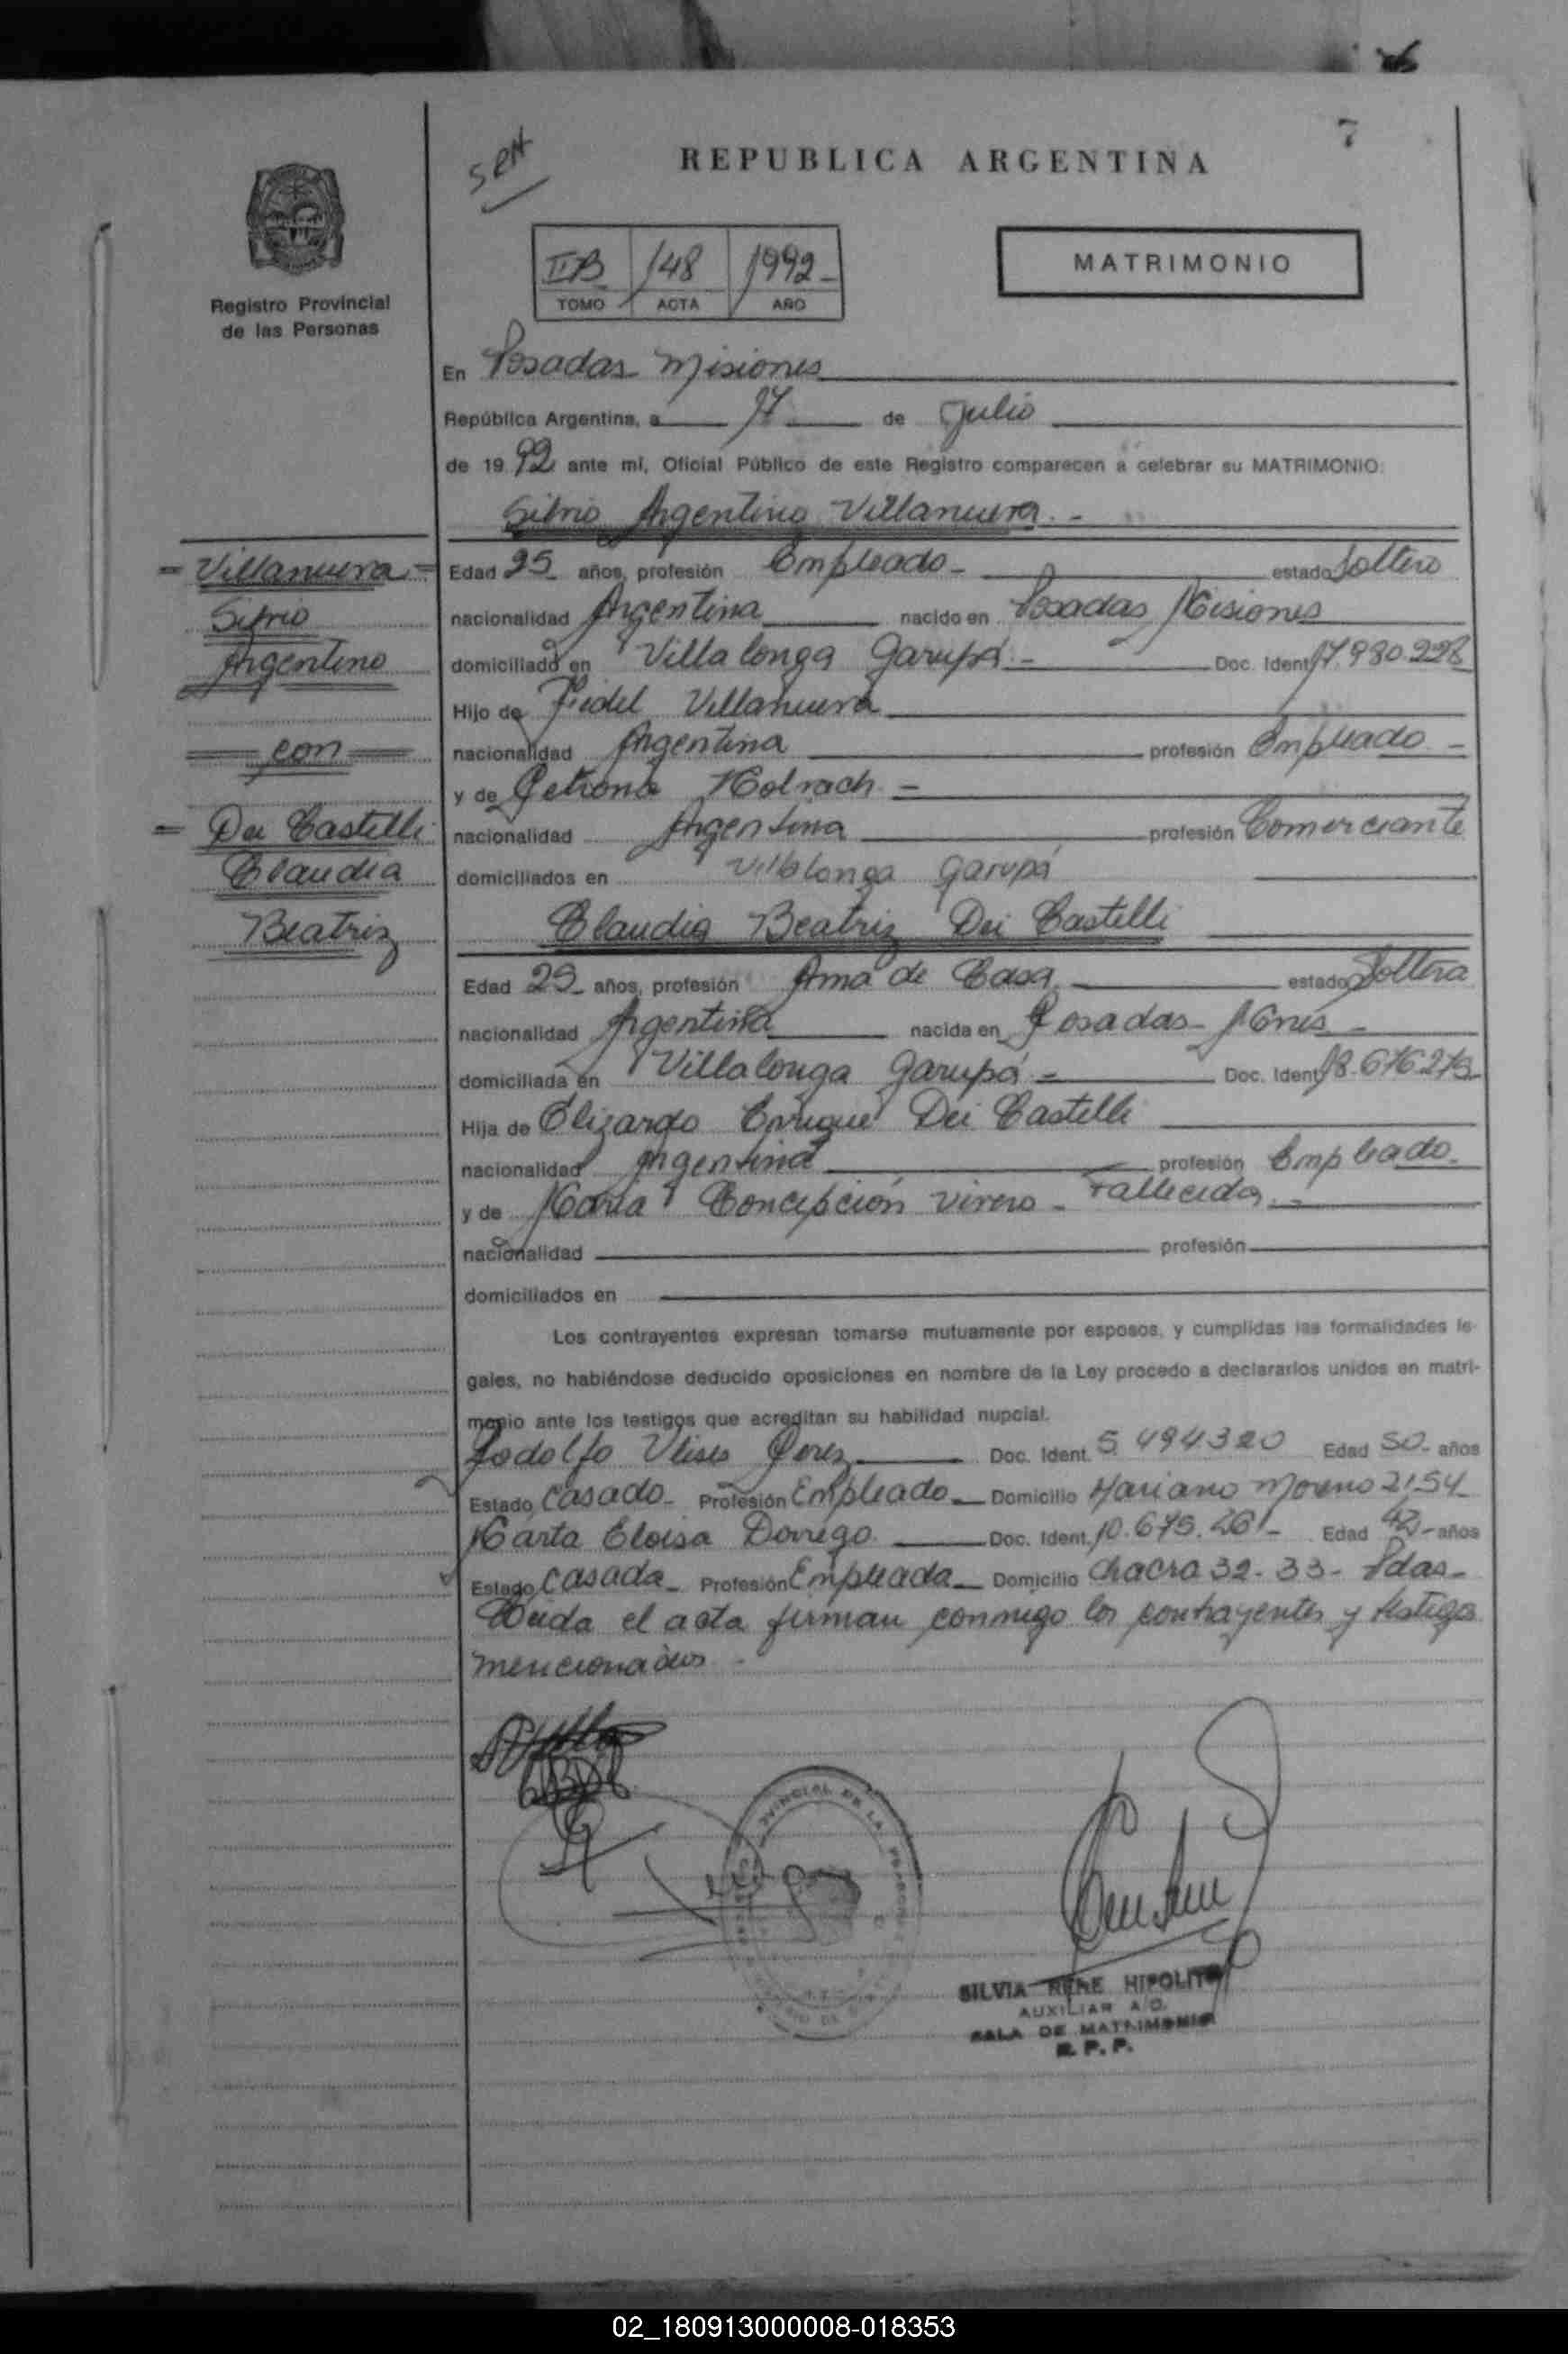 7
REPUBLICA ARGENTINA
IIB 148 1992-
TOMO ACTA AÑO
MATRIMONIO
Registro Provincial
de las Personas
En Posadas Misiones
República Argentina, a 17 de Julio
de 1992 ante mí, Oficial Público de este Registro comparecen a celebrar su MATRIMONIO:
Silvio Argentino Villanueva.-
= Villanueva =
Silvio
Argentino
con
= Dei Castelli
Claudia
Beatriz
Edad 25 años, profesión Empleado- estado Soltero
nacionalidad Argentina nacido en Posadas Misiones
domiciliado en Villalonga Garupá.- Doc. Ident. 17.980.228
Hijo de Fidel Villanueva
nacionalidad Argentina profesión Empleado -
y de Petrona -
nacionalidad Argentina profesión Comerciante
domiciliados en Villalonga Garupá
Claudia Beatriz Dei Castelli
Edad años, profesión Ama de Casa estado Soltera
nacionalidad Argentina nacida en Posadas- Mnes -
domiciliada en Villalonga Garupá - Doc. Ident. 18.676.279
Hija de Elizardo Enrique Dei Castelli
nacionalidad Argentina profesión Empleado.
y de Maria Concepción Vivero - Fallecida.-
nacionalidad profesión
domiciliados en
Los contrayentes expresan tomarse mutuamente por esposos, y cumplidas las formalidades le-
gales, no habiéndose deducido oposiciones en nombre de la Ley procedo a declararlos unidos en matri-
monio ante los testigos que acreditan su habilidad nupcial.
Rodolfo Ulises Perez Doc. Ident. 5.494320 Edad 50- años
Estado Casado- Profesión Empleado- Domicilio Mariano Moreno 2154-
Marta Eloisa Dorrego Doc. Ident. 10.675.261- Edad 42- años
Estado Casada- Profesión Empleada- Domicilio Chacra 32-33- Pdas-
Leida el acta firman conmigo los contrayentes y testigos
mencionados -
SILVIA RENE HIPOLITO
AUXILIAR A/C.
SALA DE MATRIMONIO
R. P. P.
02_180913000008-018353